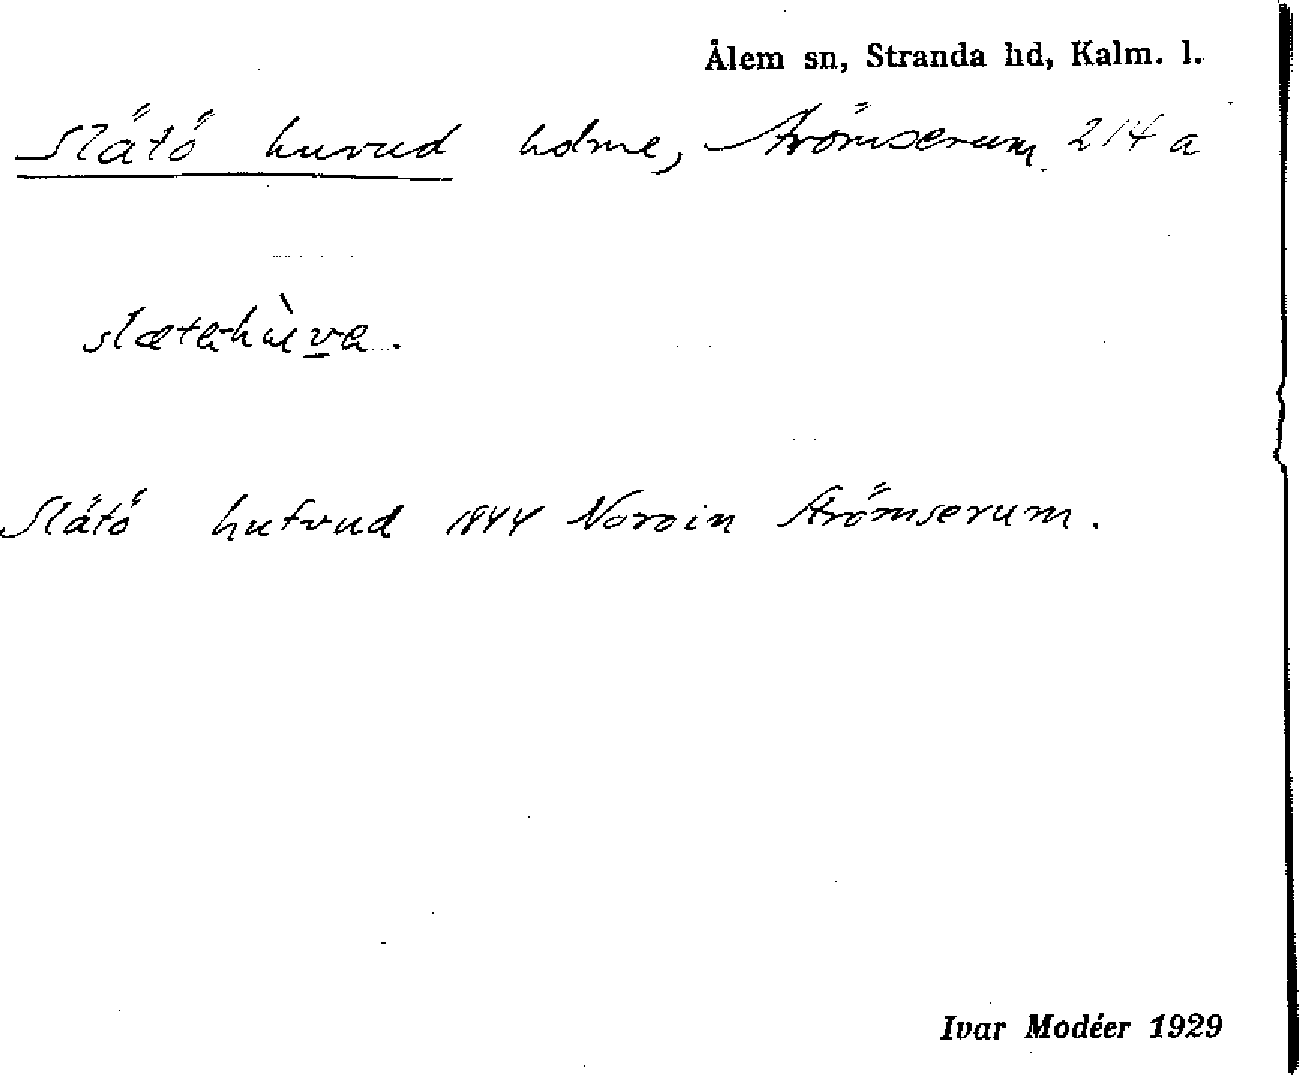 Ålem sn, Stranda hd, Kalm. l.
Slätö huvud holme, Strömserum 214 a
slætahùva.
Slätö hufvud 1844 Norein Strömserum.
Ivar Modéer 1929